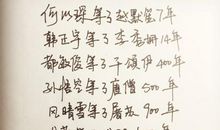 何以琛等了赵默笙7年
韩正宇等了李香娜14年
都敏俊等了千颂伊400年
孙悟空等了唐僧500年
风晴雪等了屠苏900年